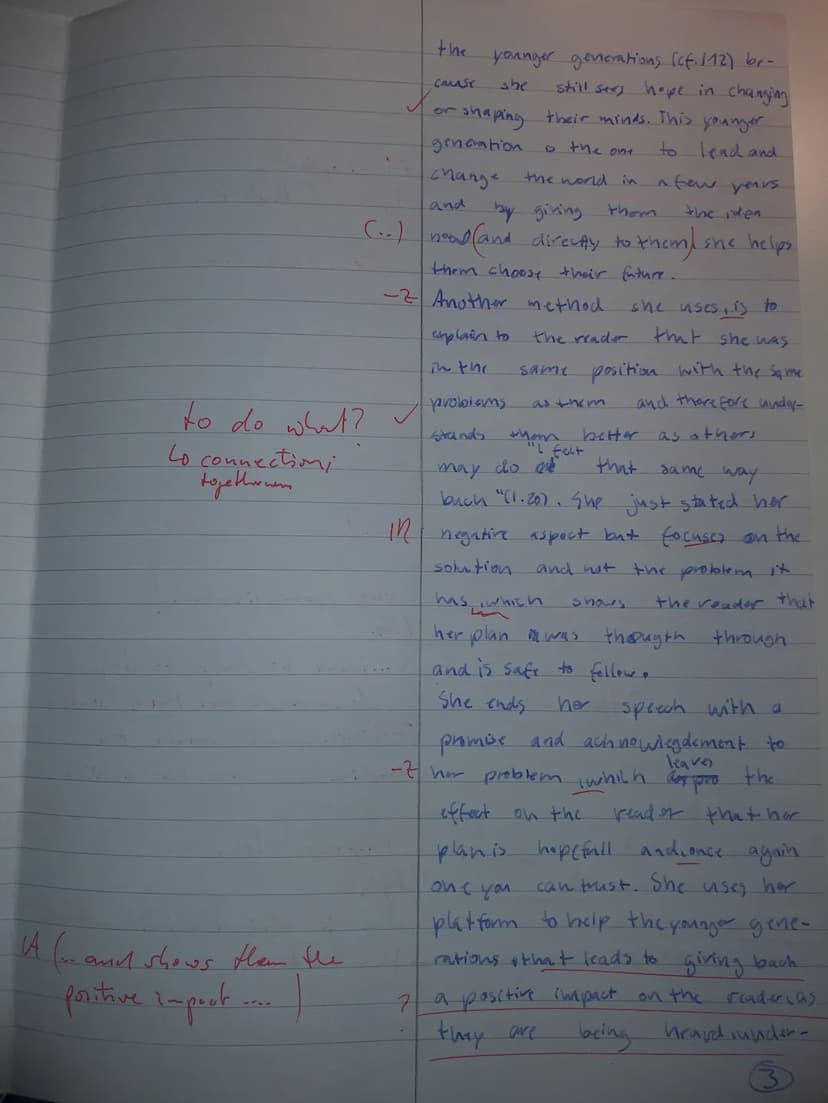 the younger generations (cf. l 12) be-
cause she still sees hope in changing
or shaping their minds. This younger
generation is the one to lead and
change the world in a few years
and by giving them the idea
(...) (and directly to them) she helps
them choose their future.
-Z Another method she uses, is to
explain to the reader that she was
in the same position with the same
problems as them and therefore under-
to do what?
↳ connection;
stands them better as others
may do "I felt that same way
back" (l. 20). She just stated her
negative aspect but focuses on the
solution and not the problem it
has, which shows the reader that
her plan was thougth through
and is safe to follow.
She ends her speech with a
promise and achnowlegdement to
-Z her problem, which leaves the
effect on the reader that her
plan is hopefull and, once again
one you can trust. She uses her
platform to help the younger gene-
rations, that leads to giving back
A (... and shows them the
positive impact ....)
? a positive impact on the reader, as
they are being heard, under-
3